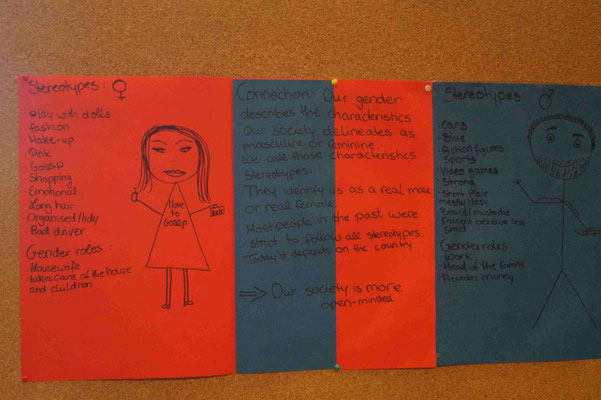 Stereotypes: ♀
· Play with dolls
· fashion
· Make-up
· Pink
· Gossip
· Shopping
· Emotional
· Long hair
· Organised/tidy
· Bad driver
Gender roles:
Housewife
takes care of the house
and children
I love
to
Gossip
Connection: Our gender
describes the characteristics
Our society delineates as
masculine or feminine.
We call those characteristics
stereotypes.
They identify us as a real male
or real female.
Most people in the past were
strict to follow all stereotypes.
Today it depends on the country
⇒ Our society is more
open-minded
Stereotypes ♂
· cars
· Blue
· Action figures
· Sports
· Video games
· Strong
· Short hair
messy/lazy
· Beard/mustache
behave less
strict
Genderroles
· Work
· Head of the family
· Provides money